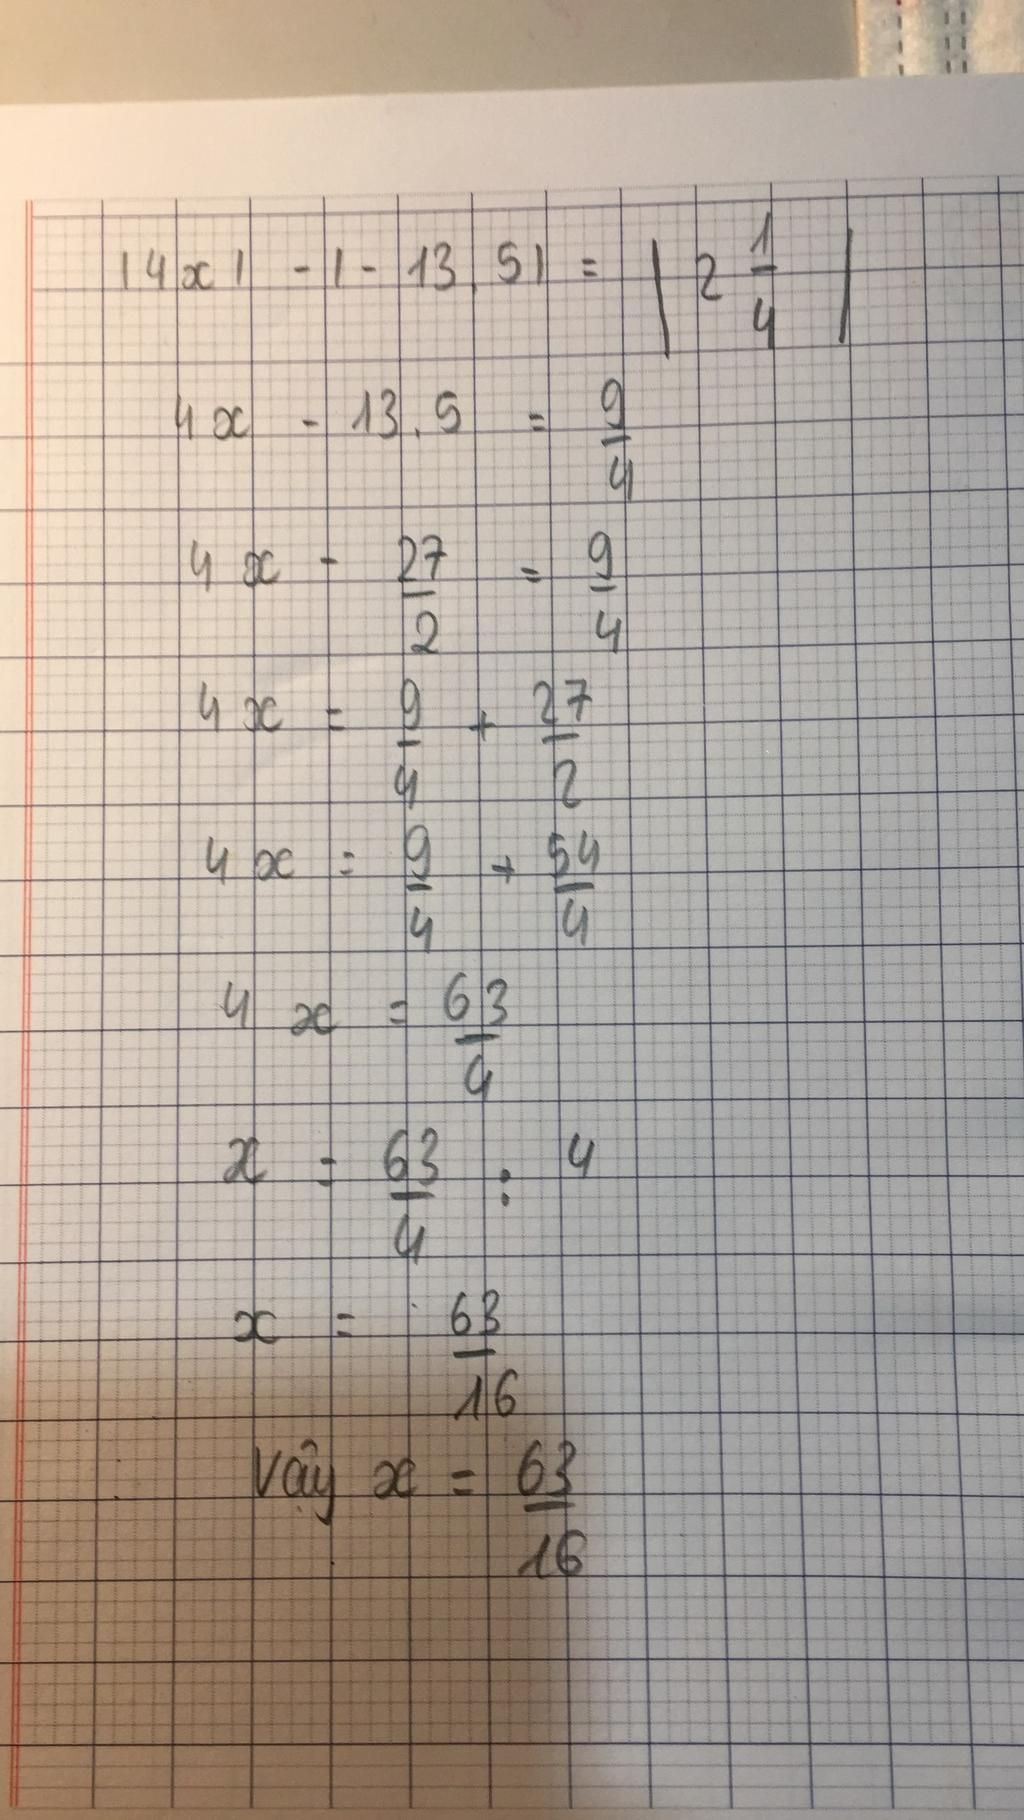 |4x| - |-13,5| = |2 1/4|
4x - 13,5 = 9/4
4x - 27/2 = 9/4
4x = 9/4 + 27/2
4x = 9/4 + 54/4
4x = 63/4
x = 63/4 : 4
x = 63/16
Vậy x = 63/16